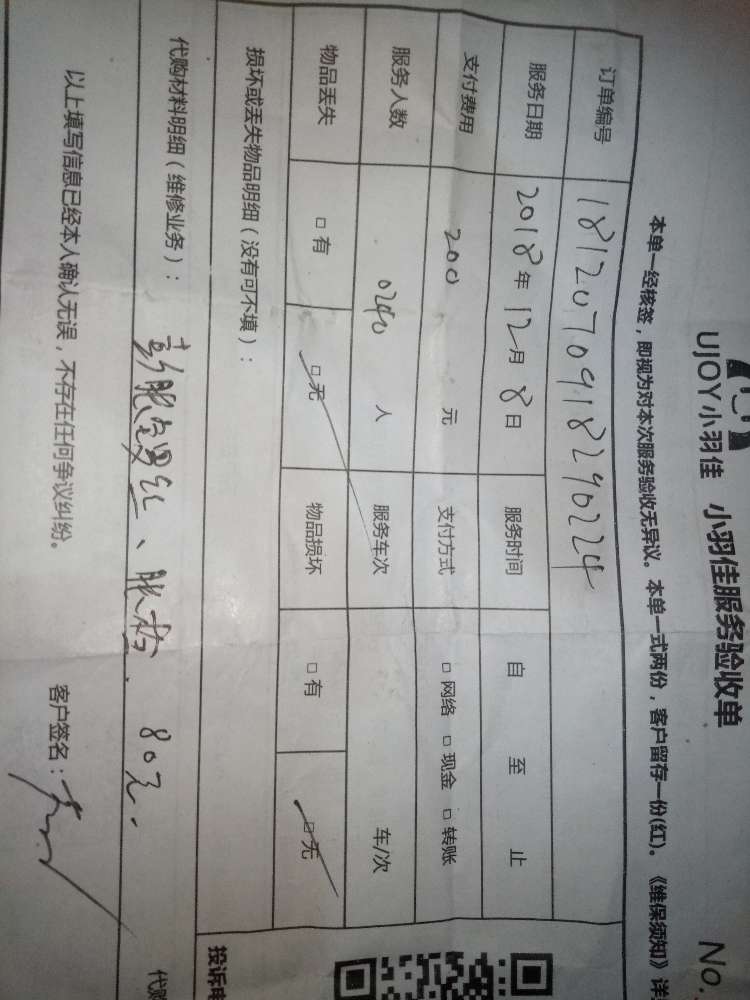 No.
UJOY小羽佳 小羽佳服务验收单
本单一经核签，即视为对本次服务验收无异议。本单一式两份，客户留存一份(红)。《维保须知》详
订单编号 1812070918290224
服务日期 2018年12月8日 服务时间 自 至 止
支付费用 200 元 支付方式 □网络 □现金 □转账
服务人数 人 服务车次 车/次
物品丢失 □有 □无 物品损坏 □有 □无
损坏或丢失物品明细（没有可不填）：
投诉电
代购材料明细（维修业务）： 80元.
代购
以上填写信息已经本人确认无误，不存在任何争议纠纷。 客户签名：